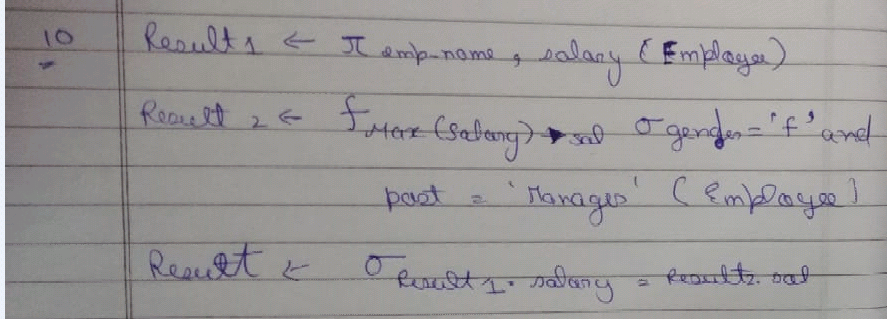 10 Result 1 ← π emp-name, salary (Employee)
Result 2 ← f Max (Salary) → sal σ gender = 'f' and
post = 'Manager' (Employee)
Result ← σ Result 1. salary = Result2. sal